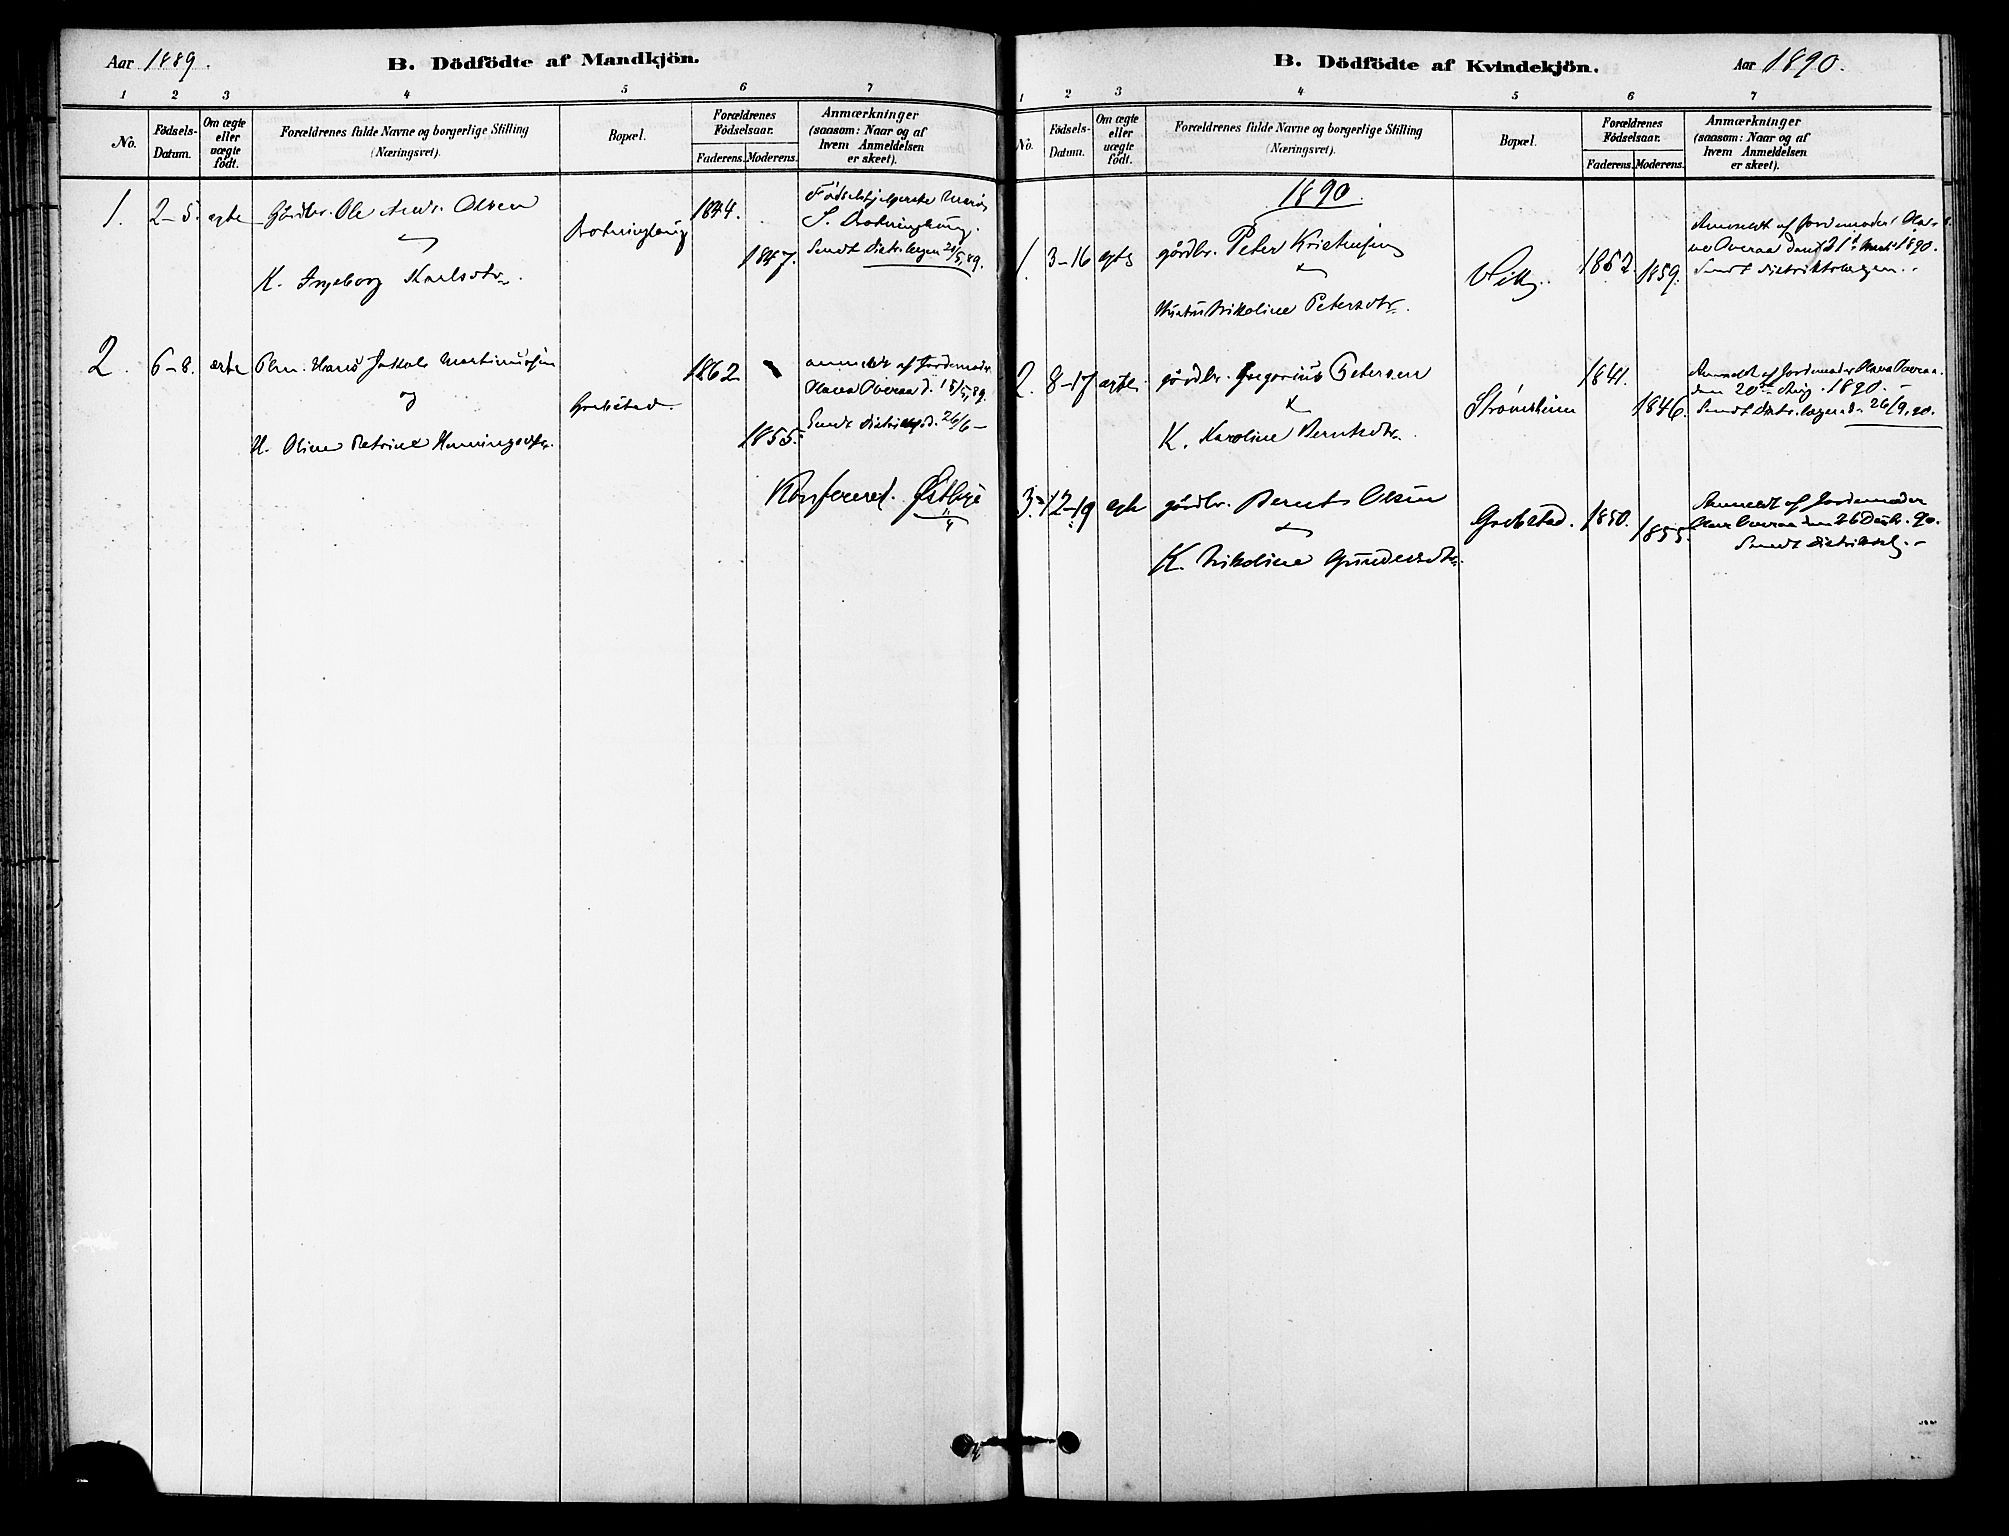 Aar 1889.
B. Dödfödte af Mandkjön.
1 2 3 4 5 6 7
No.
Födsels-
Datum.
Om ægte
eller
uægte
födt.
Forældrenes fulde Navne og borgerlige Stilling
(Næringsvei).
Bopæl.
Forældrenes
Födselsaar.
Faderens. Moderens.
Anmærkninger
(saasom: Naar og af
hvem Anmeldelsen
er skeet).
1. 2-5. ægte Gårdbr. Ole Andr. Olsen
K. Ingeborg Karlsdtr.
1844.
1847.
Fødselshjælperske
S.
Sendt Distr.lægen 21/5 89.
2. 6-8. ægte Plm. Hans Jakob Martinussen
og
H. Oline Petrine Henningsdtr.
Grebstad.
1862
1855.
anmeldt af Jordemoder
Hana Overaa d. 18/5 89.
Sendt 26/6
Konfereret. Østbye
B. Dödfödte af Kvindekjön.
Aar 1890.
1 2 3 4 5 6 7
No.
Födsels-
Datum.
Om ægte
eller
uægte
födt.
Forældrenes fulde Navne og borgerlige Stilling
(Næringsvei).
Bopæl.
Forældrenes
Födselsaar.
Faderens. Moderens.
Anmærkninger
(saasom: Naar og af
hvem Anmeldelsen
er skeet).
1890.
1. 3-16 ægte gårdbr. Peter Kristensen
Nikoline Petersdtr.
Vik.
1852.
1859.
Anmeldt af Jordemoder
Overaa den 21 1890.
Sendt distriktslægen.
2. 8-17 ægte. gårdbr. Gregorius Petersen
K. Karoline Berntsdtr.
Strømsheim
1841.
1846.
Anmeldt af Jordemoder Hana Overaa
den 20de Aug. 1890.
Sendt Distr.lægen d. 26/9 90.
3. 12-19 ægte gårdbr. Bernt Olsen
K. Nikoline Gundersdtr.
Grebstad.
1850.
1855.
Anmeldt af Jordemoder
Overaa den 26 Decbr. 90.
Sendt distriktsl.